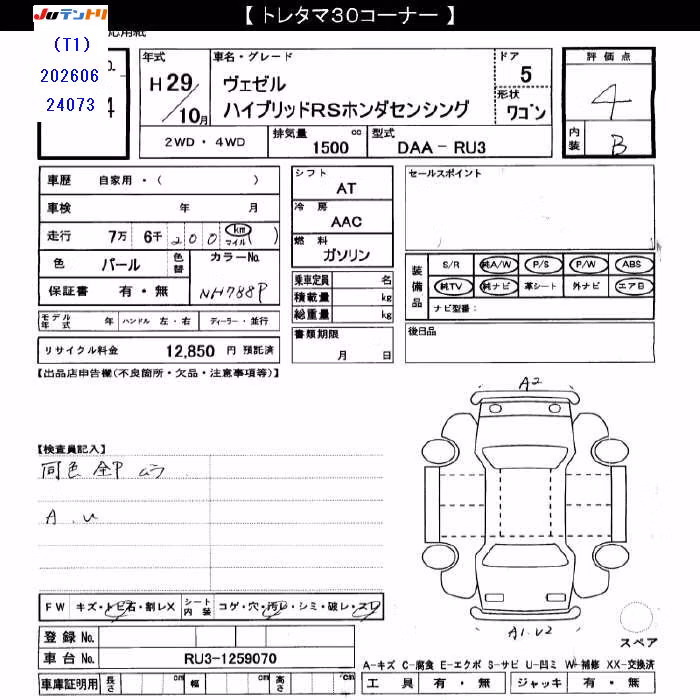 【 トレタマ30コーナー 】
Juテントリ
(T1)
202606
24073
年式
H 29/10月
車名・グレード
ヴェゼル
ハイブリッドRSホンダセンシング
ドア
5
形状
ワゴン
評価点
4
内装
B
2WD・4WD
排気量
1500 cc
型式
DAA－RU3
車歴 自家用・( )
車検 年 月
走行 7万 6千 200 km マイル ( )
色 パール 色替 カラーNo.
NH788P
保証書 有・無
シフト
AT
冷房
AAC
燃料
ガソリン
乗車定員 名
積載量 kg
総重量 kg
セールスポイント
装備品
S/R 純A/W P/S P/W ABS
純TV 純ナビ 革シート 外ナビ エアB
ナビ型番:
モデル年式 年 ハンドル 左・右 ディーラー・並行
リサイクル料金 12,850 円 預託済
書類期限
月 日
後日品
【出品店申告欄(不良箇所・欠品・注意事項等)】
A2
【検査員記入】
同色
A.U
FW キズ・トビ石・割レX シート内装 コゲ・穴・汚レ・シミ・破レ・スレ
A1.U2
スペア
登録 No.
車台 No. RU3-1259070
A-キズ C-腐食 E-エクボ S-サビ U-凹ミ W-補修 XX-交換済
車庫証明用 長さ cm 幅 cm 高さ cm
工具 有・無 ジャッキ 有・無